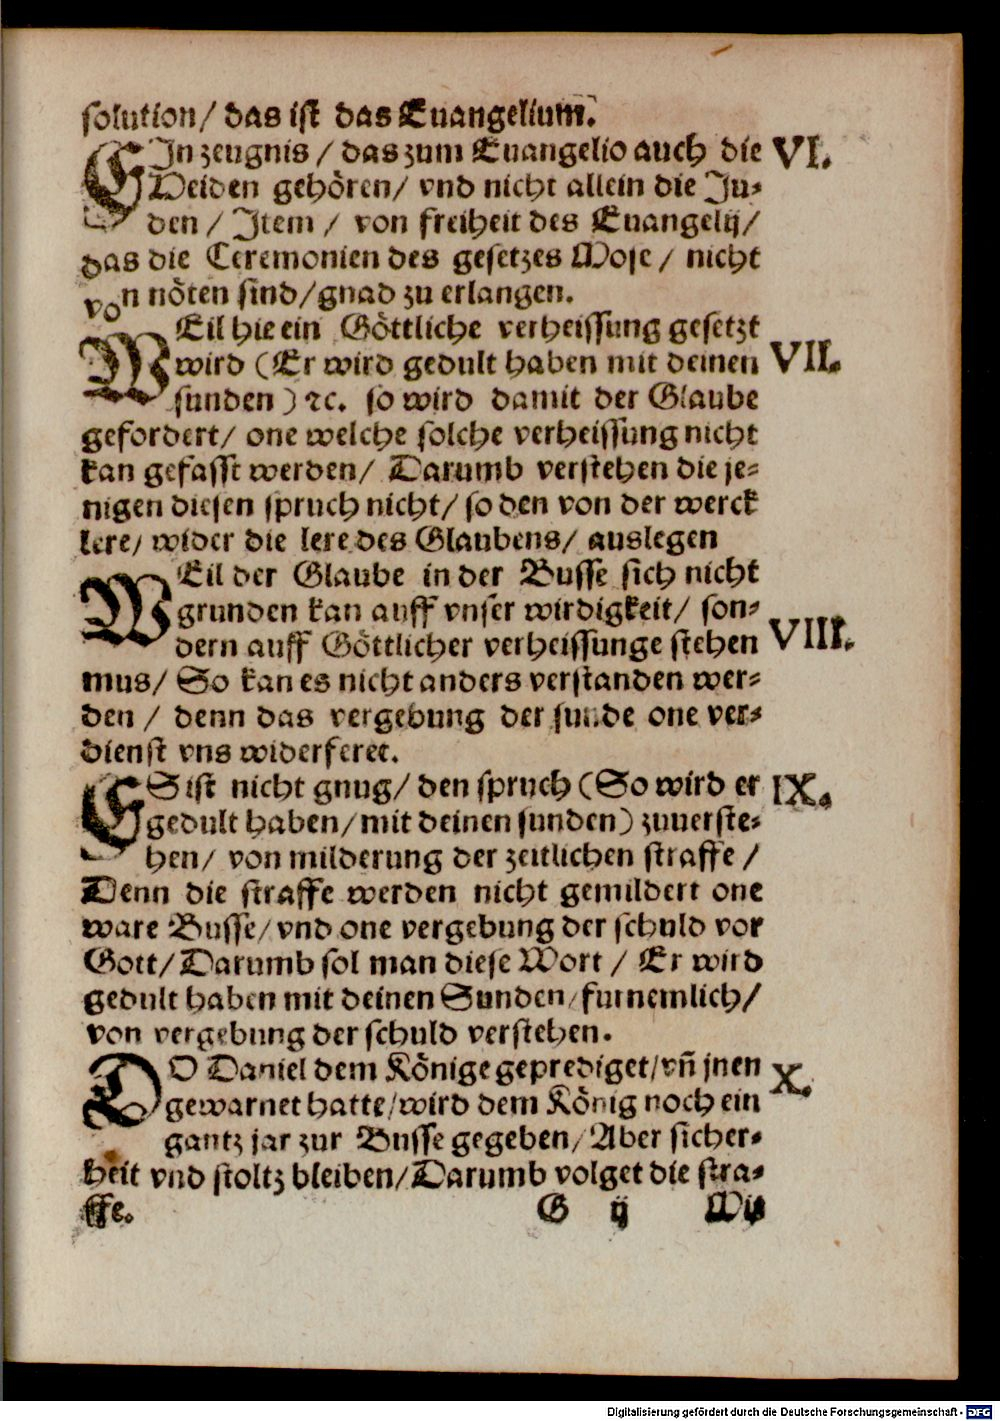 solution/ das ist das Euangelium.
EIn zeugnis / das zum Euangelio auch die VI.
Heiden gehören/ vnd nicht allein die Jü⸗
den / Item / von freiheit des Euangelij/
das die Ceremonien des gesetzes Mose / nicht
von nöten sind/gnad zu erlangen.
WEil hie ein Göttliche verheissung gesetzt
wird (Er wird gedult haben mit deinen VII.
sunden ) ⁊c. so wird damit der Glaube
gefordert/ one welche solche verheissung nicht
kan gefasst werden/ Darumb verstehen die je⸗
nigen diesen spruch nicht/ so den von der werck
lere/ wider die lere des Glaubens/ auslegen
WEil der Glaube in der Busse sich nicht
grunden kan auff vnser wirdigkeit/ son⸗
dern auff Göttlicher verheissunge stehen VIII.
mus/ So kan es nicht anders verstanden wer⸗
den / denn das vergebung der sunde one ver⸗
dienst vns widerferet.
ES ist nicht gnug/ den spruch (So wird er IX.
gedult haben/mit deinen sunden) zuuerste⸗
hen/ von milderung der zeitlichen straffe /
Denn die straffe werden nicht gemildert one
ware Busse/ vnd one vergebung der schuld vor
Gott/ Darumb sol man diese Wort / Er wird
gedult haben mit deinen Sunden/ furnemlich/
von vergebung der schuld verstehen.
DO Daniel dem Könige geprediget/ vñ jnen X.
gewarnet hatte/ wird dem König noch ein
gantz jar zur Busse gegeben/ Aber sicher⸗
heit vnd stoltz bleiben/ Darumb volget die stra⸗
ffe.
G ij Wis
Digitalisierung gefördert durch die Deutsche Forschungsgemeinschaft - DFG